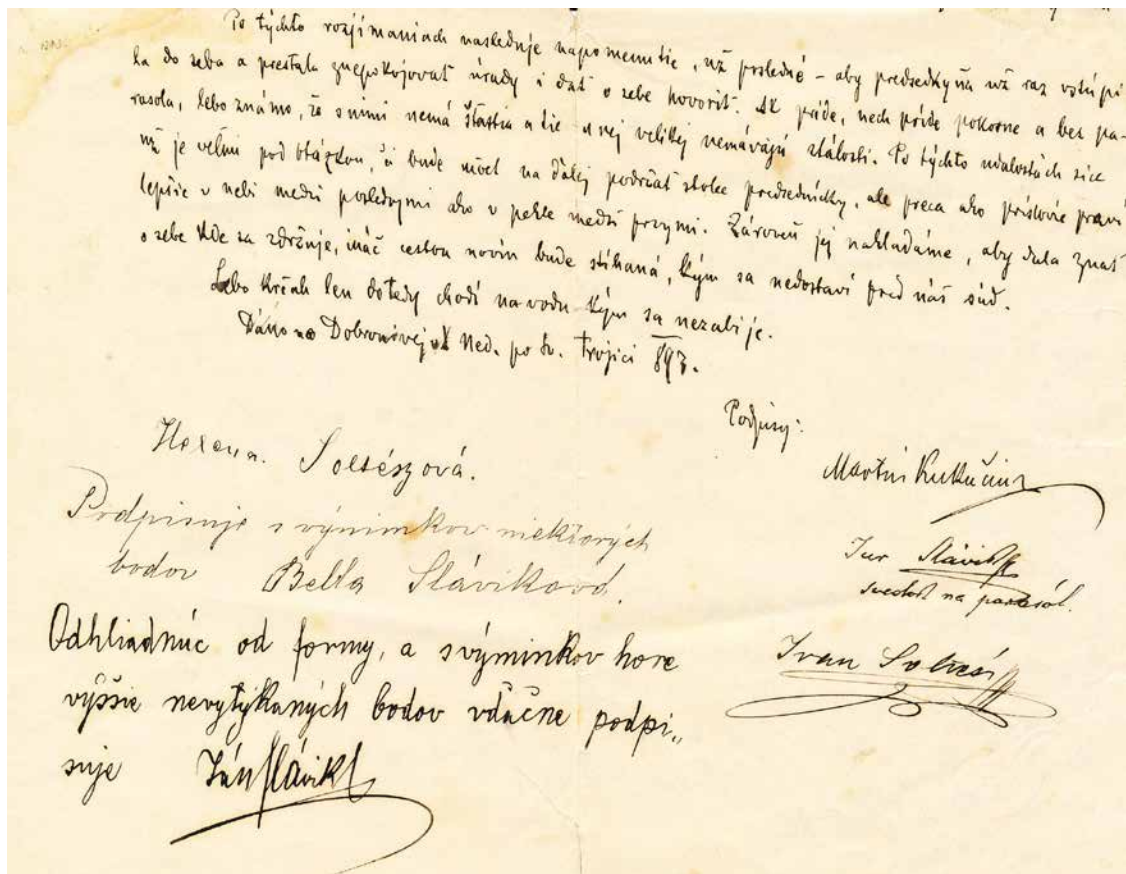 Po týchto rozjímaniach nasleduje napomenutie, už posledné – aby predsedkyňa už raz vstúpi
la do seba a prestala znepokojovať úrady i dať o sebe hovoriť. Ak príde, nech príde pokorne a bez pa-
rasola, lebo známo, že s nimi nemá šťastia a tie u nej velikej nemávajú stálosti. Po týchto udalostach síce
už je veľmi pod otázkou, či bude môcť na ďalej podržať stolec predsednícky, ale preca ako príslovie praví
lepšie v nebi medzi poslednými ako v pekle medzi prvými. Zároveň jej nakladáme, aby dala znať
o sebe kde sa zdržuje, ináč cestou novín bude stíhaná, kým sa nedostaví pred náš súd.
Lebo krčah len dotedy chodí na vodu kým sa nezabije.
Dáno na Dobronivej Ned. po sv. Trojici 893.
Podpisy:
Martin Kukučín
Helena Soltészová.
Podpisuje s výnimkov niektorých
bodov Bella Sláviková.
Jur Slávik
svedok na parasól.
Ivan Soltész
Odhliadnúc od formy, a svýminkov hore
výššie nevytýkaných bodov vďačne podpi„
suje Ján Slávik